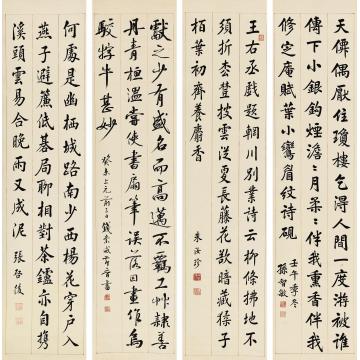 天僊偶厭住瓊樓乞得人間一度游被誰
傳下小銀鉤煙澹〻月柔〻伴我熏香伴我
修定庵賦葉小鸞眉紋詩硯 壬午季冬
孫智敏
王右丞戲題輞川別業詩云柳條拂地不
須折松樹披雲從更長藤花欲暗藏猱子
柏葉初齊養麝香
朱汝珍
獻之少有盛名而高邁不羈工草隸善
丹青桓溫嘗使書扇筆誤落因畫作烏
駮牸牛甚妙 癸未上元前 日錢崇威 書
何處是幽栖城 楊花穿戶入
燕子避簾低棊局聊相對茶鑪亦自攜
溪頭雲易合晚雨又成泥 張啟後